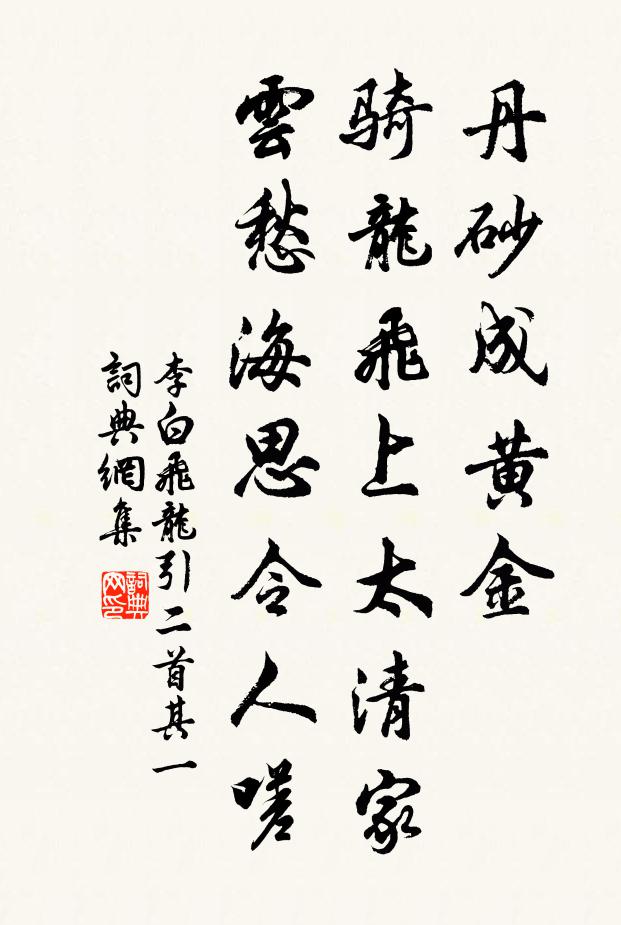 丹砂成黄金
騎龍飛上太清家
雲愁海思令人嗟
李白飛龍引二首其一
詞典網集
詞典网印